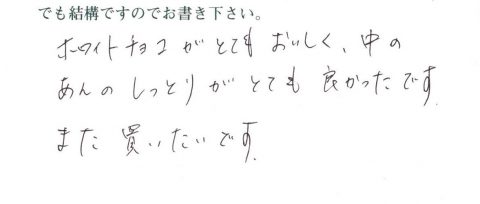 でも結構ですのでお書き下さい。
ホワイトチョコがとてもおいしく、中の
あんのしっとりがとても良かったです
また買いたいです。